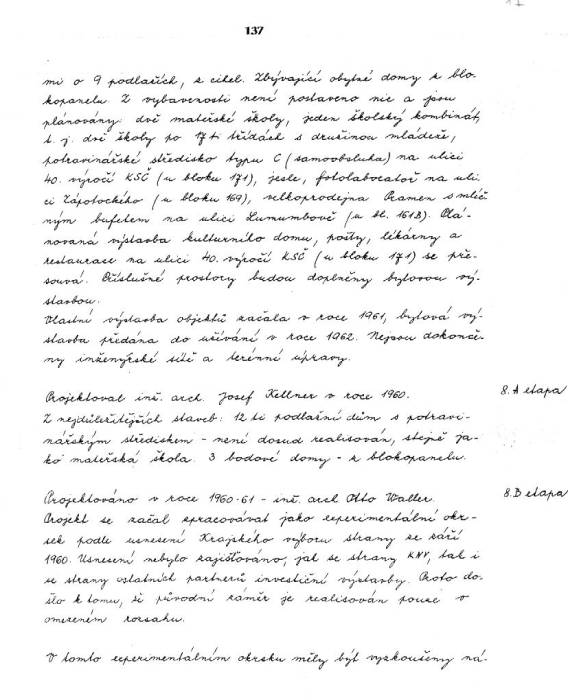 137
mi o 9 podlažích, z cihel. Zbývající obytné domy z blo-
kopanelu. Z vybavenosti není postaveno nic a jsou
plánovány: dvě mateřské školy, jeden školský kombinát,
t. j. dvě školy po 17ti třídách s družinou mládeže,
potravinářské středisko typu C (samoobsluha) na ulici
40. výročí KSČ (u bloku 171), jesle, fotolaboratoř na uli-
ci Zápotockého (u bloku 169), velkoprodejna Pramen s mléč-
ným bufetem na ulici Lumumbově (u bl. 161B). Plá-
novaná výstavba kulturního domu, pošty, lékárny a
restaurace na ulici 40. výročí KSČ (u bloku 171) se pře-
souvá. Příslušné prostory budou doplněny bytovou vý-
stavbou.
Vlastní výstavba objektů začala v roce 1961, bytová vý-
stavba předána do užívání v roce 1962. Nejsou dokonče-
ny inženýrské sítě a terénní úpravy.
Projektoval inž. arch. Josef Kellner v roce 1960.
8. A etapa
Z nejdůležitějších staveb: 12ti podlažní dům s potravi-
nářským střediskem - není dosud realisován, stejně ja-
ko mateřská škola. 3 bodové domy - z blokopanelu.
Projektováno v roce 1960-61 - inž. arch Otto Waller.
8. B etapa
Projekt se začal zpracovávat jako experimentální okr-
sek podle usnesení Krajského výboru strany ze září
1960. Usnesení nebylo zajišťováno, jak se strany KNV, tak i
se strany ostatních partnerů investiční výstavby. Proto do-
šlo k tomu, že původní záměr je realisován pouze v
omezeném rozsahu.
V tomto experimentálním okrsku měly být vyzkoušeny ná-